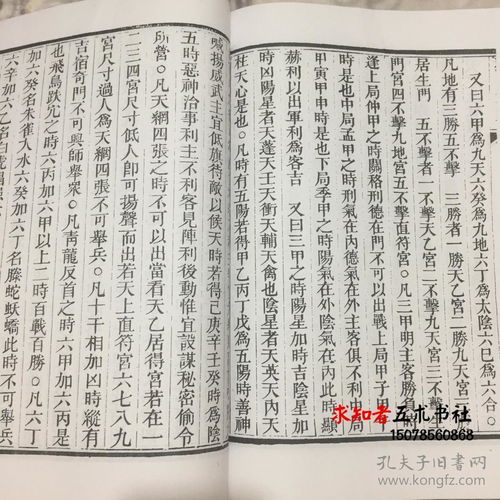 又曰六甲為九天六癸為九地六丁為太陰六巳為六合○
凡地有三勝五不擊　三勝者一勝天乙宮二勝九天宮三
居生門　五不擊者一不擊天乙宮二不擊九天宮三不擊
門宮四不擊九地宮五不擊直符宮○凡三甲明主客勝負
逢上局仲甲之時關格刑德在門不可以出戰上局甲子甲
時是也中局孟甲之時刑氣在內德氣在外主客俱不利日
甲寅甲申時是也下局季甲之時陽氣在外陰氣在內此時
赫利以出軍利為客吉　又曰三甲之時陽星加時吉陰星加
時凶陽星者天蓬天壬天衝天輔天禽也陰星者天英天內天
柱天心是也○凡時有五陽若得甲乙丙丁戊為五陽時善神
喊揚威武主宜低旗待敵以候天時若得己庚辛壬癸時為陰
五時惡神洽事利主不利客見陣利後動惟宜設謀秘密偷令
所營○凡天網四張之時不可以出當看天乙居得宮若在一
二三四宮尺寸低人即可揚聲而出若天上直符宮六七八九
宮尺寸過人為天網四張不可舉兵○凡十干相加凶時縱有
吉宿奇門不可與師舉衆○凡青龍反首之時六甲加六丙是
也飛鳥跌穴之時六丙加六甲以上二時百戰百勝○凡六丁
加六癸名朱雀入水六癸加六丁名螣蛇蚨蟜此時不可舉兵
六辛加六乙名白虎猖
求知者五术书社
15078560868
孔夫子旧书网
www.kongfz.com